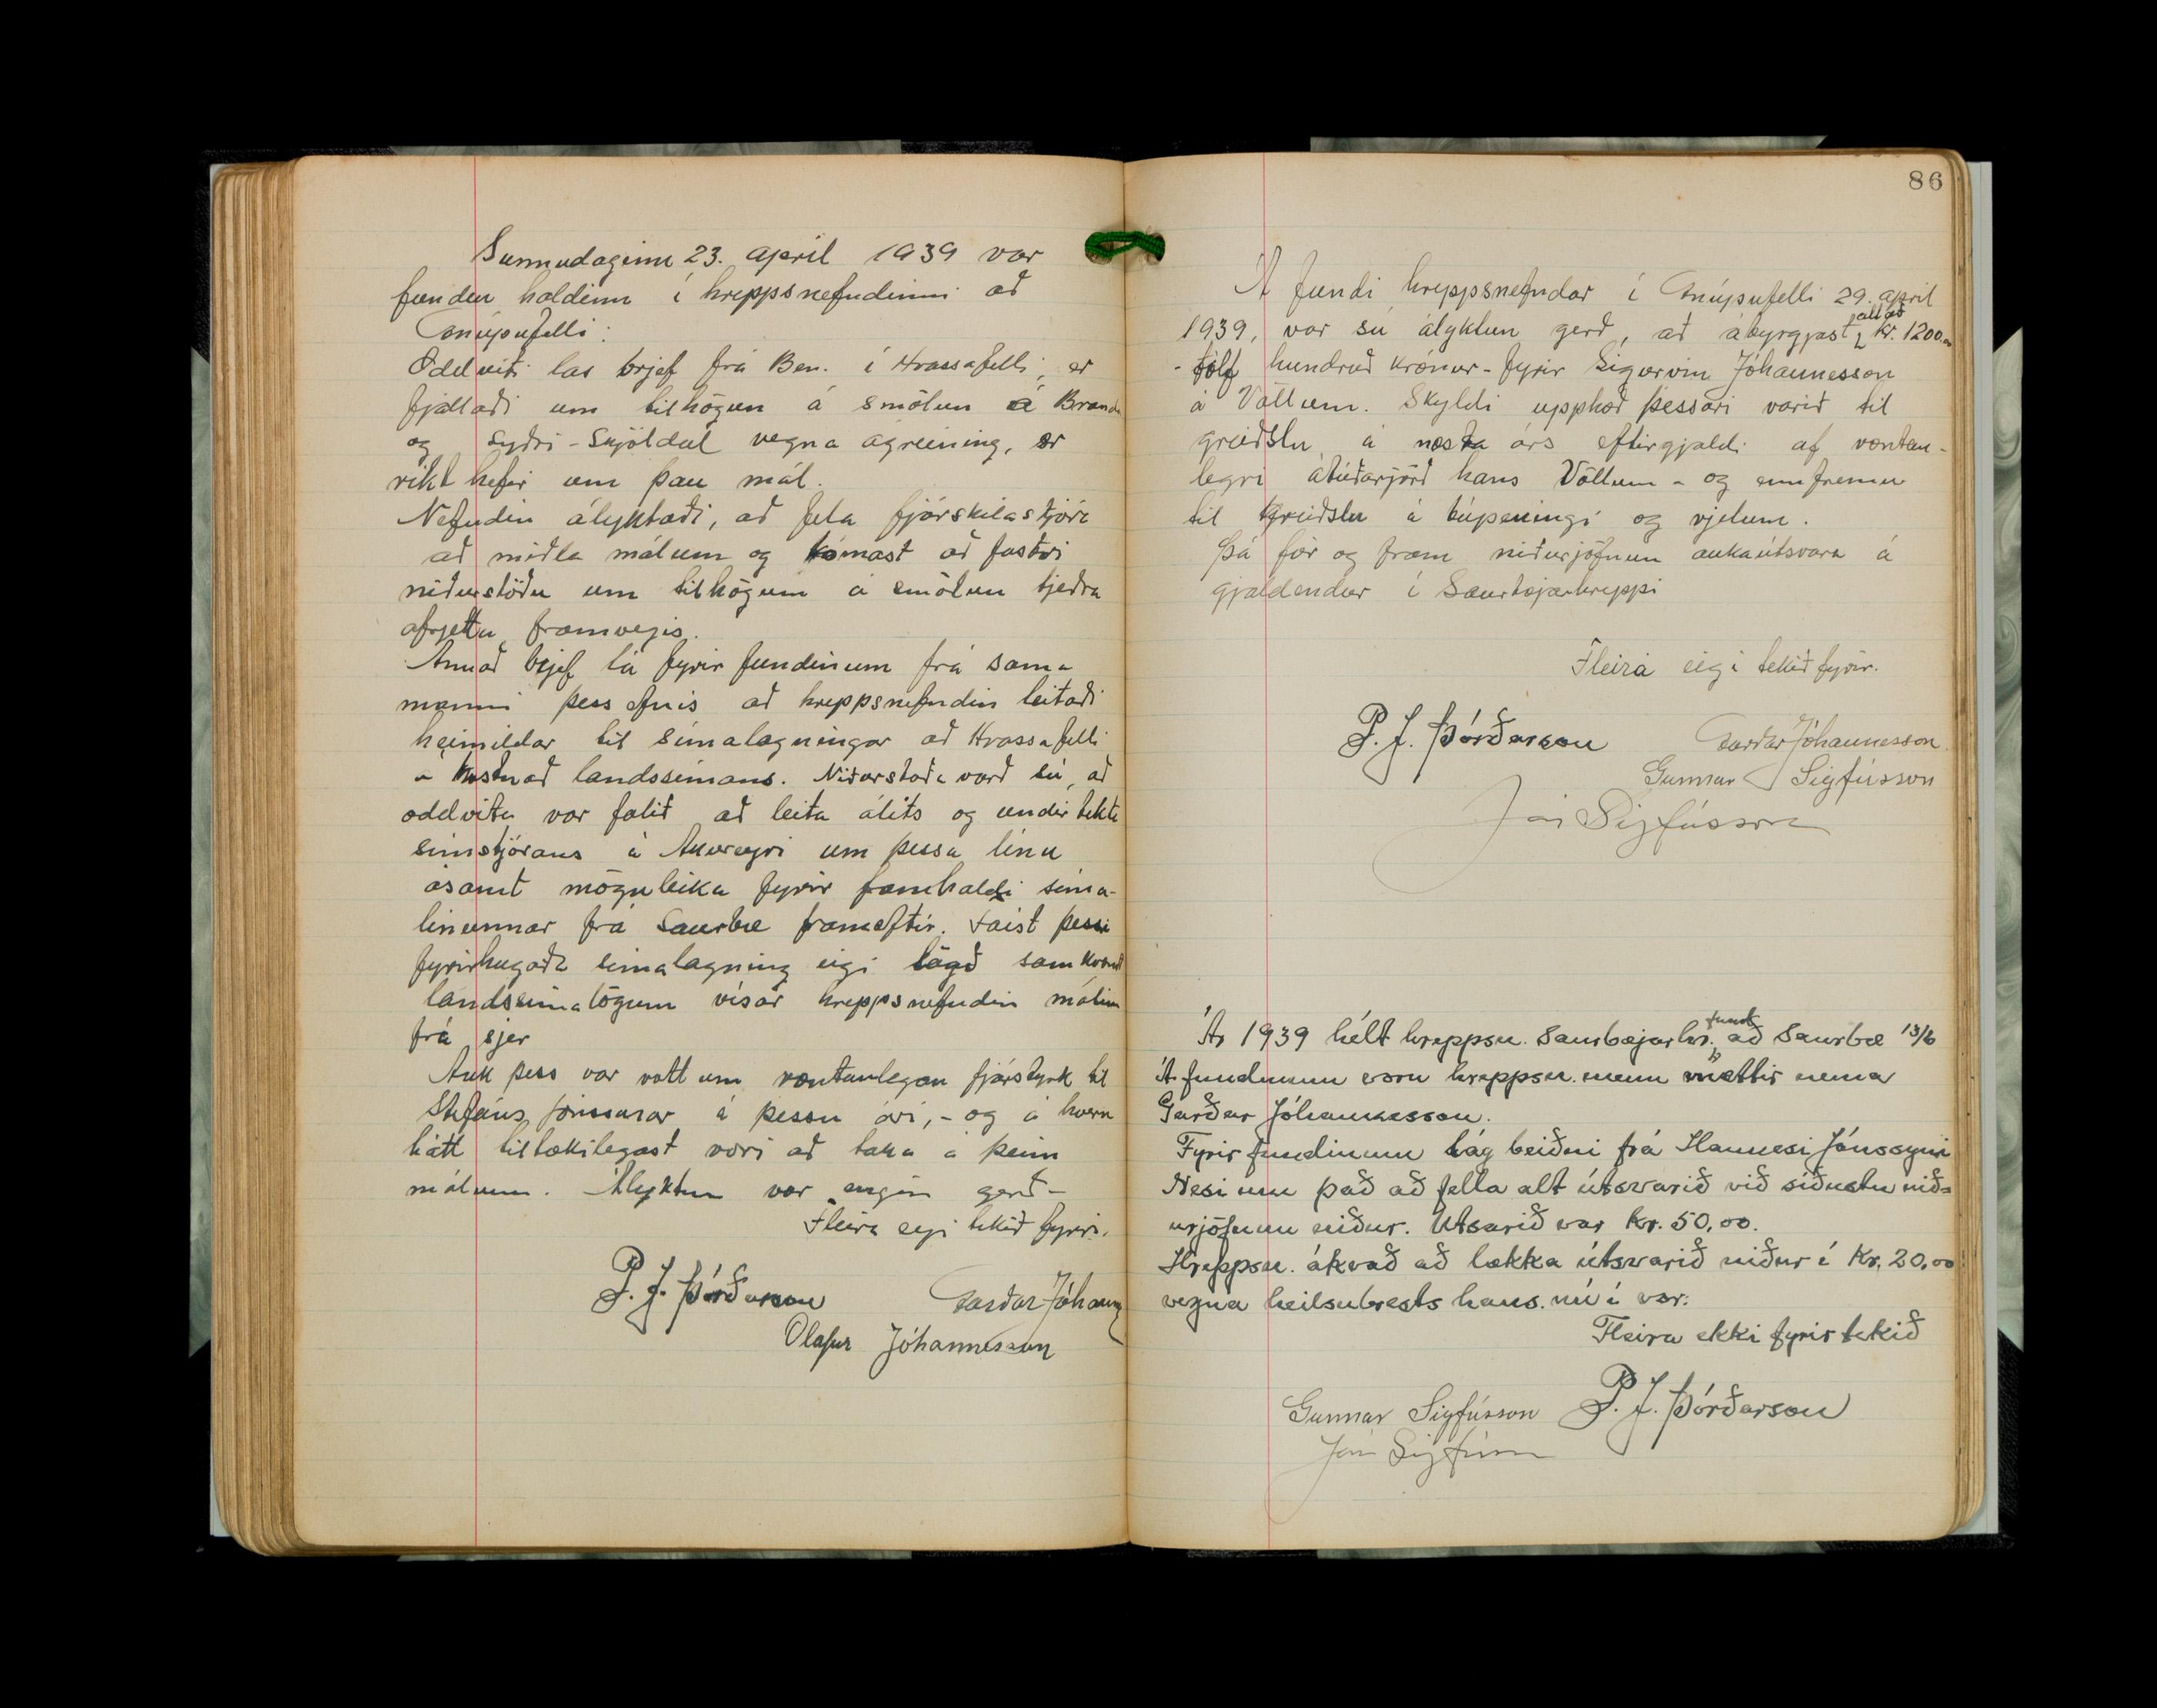 Sunnudaginn 23. apríl 1939 var
fundur haldinn í hreppsnefndinni að
Gnúpufelli:
Oddviti las brjef frá Ben. í Hvassafelli, er
fjallaði um tilhögun á smölun á Branda
og Syðri-Skjóldal vegna ágreining, er
ríkt hefir um þau mál.
Nefndin ályktaði, að fela fjárskilastjóra
að miðla málum og komast að fastri
niðurstöðu um tilhögun á smölun tjeðra
afrjetta framvegis.
Annað brjef lá fyrir fundinum frá sama
manni þess efnis að hreppsnefndin leitaði
heimildar til símalagningar að Hvassafelli
á kostnað landssímans. Niðurstaða varð sú, að
oddvita var falið að leita álits og undirtekta
símstjórans á Akureyri um þessa línu
ásamt möguleika fyrir framhaldi síma-
línunnar frá Saurbæ frameftir. Fáist þessi
fyrirhugaða símalagning eigi lögð samkvæmt
landssímalögum vísar hreppsnefndin málinu
frá sjer
Auk þess var rætt um væntanlegan fjárstyrk til
Stefáns Jónssonar á þessu ári, - og á hvern
hátt tiltækilegast væri að taka á þeim
málum. Ályktun var engin gerð -
Fleira eigi tekið fyrir.
P. J. Þórðarson Garðar Jóhanns
Olafur Jóhannesson
86
Á fundi hreppsnefndar í Gnúpufelli 29. apríl
1939, var sú ályktun gerð, að ábyrgjast allt að kr. 1200.00
- tólf hundruð krónur - fyrir Sigurvin Jóhannesson
á Völlum. Skyldi upphæð þessari varið til
greiðslu á næsta árs eftirgjaldi af væntan-
legri ábúðarjörð hans Völlum - og ennfremur
til greiðslu á búpeningi og vjelum.
Þá fór og fram niðurjöfnun aukaútsvara á
gjaldendur í Saurbæjarhreppi
Fleira eigi tekið fyrir.
P. J. Þórðarson Garðar Jóhannesson.
Gunnar Sigfússon
Jón Sigfússon
Ár 1939 hélt hreppsn. Saurbæjarhr. fund að Saurbæ 13/6
Á fundinum voru hreppsn. menn mættir nema
Garðar Jóhannesson.
Fyrir fundinum lág beiðni frá Hannesi Jónssyni
Nesi um það að fella alt útsvarið við síðustu nið=
urjöfnun niður. Útsarið var kr. 50,00.
Hreppsn. ákvað að lækka útsvarið niður í Kr. 20,00
vegna heilsubrests hans. nú í vor.
Fleira ekki fyrir tekið
Gunnar Sigfússon P. J. Þórðarson
Jón Sigfússon